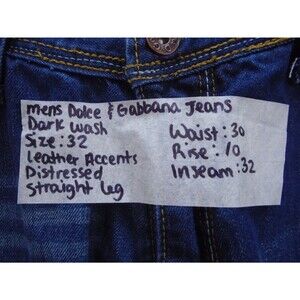 mens Dolce & Gabbana Jeans
Dark wash
Size: 32
Leather Accents
Distressed
Straight Leg
Waist: 30
Rise: 10
Inseam: 32